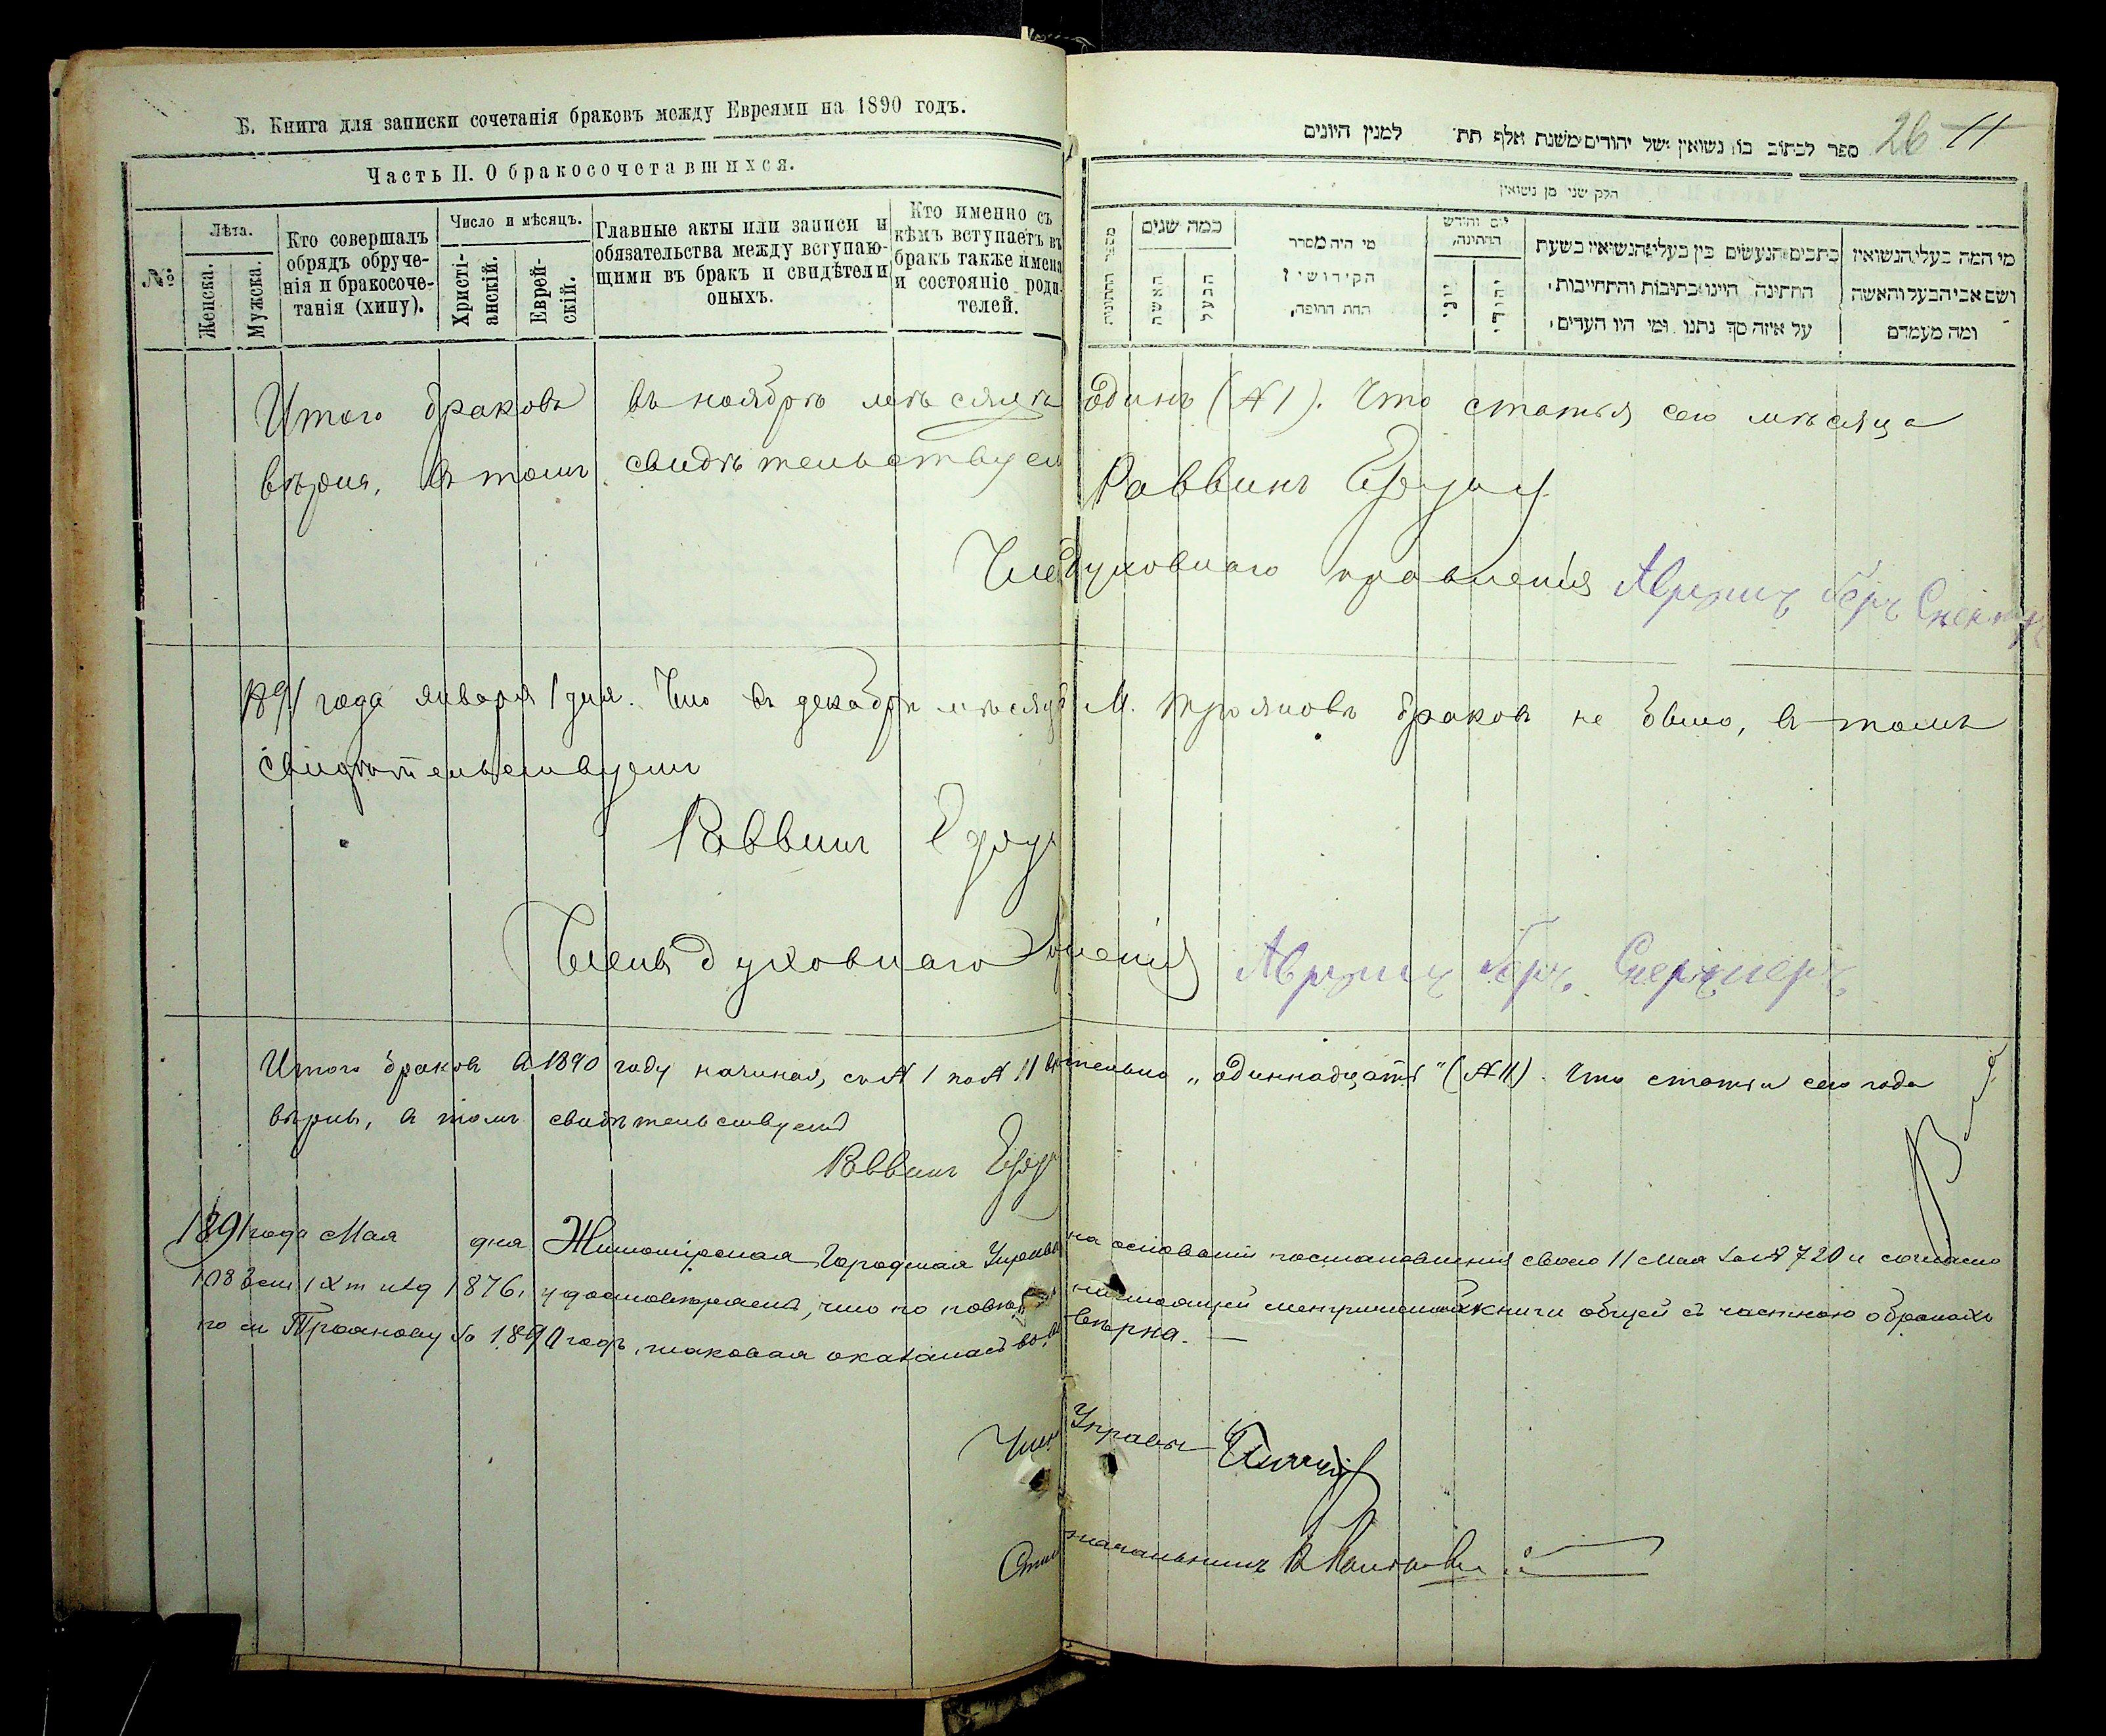 Б. Книга для записки сочетанія браковъ между Евреями на 1890 годъ.
Часть II. О бракосочетавшихся.
№
Лѣта.
Женска.
Мужска.
Кто совершалъ
обрядъ обруче-
нія и бракосоче-
танія (хипу).
Число и мѣсяцъ.
Христі-
анскій.
Еврей-
скій.
Главные акты или записи и
обязательства между вступаю-
щими въ бракъ и свидѣтели
оныхъ.
Кто именно съ
кѣмъ вступаетъ въ
бракъ также имена
и состояніе роди-
телей.
ספר לכתוב בו נשואין של יהודים משנת אלף תת למנין היונים
26 11
חלק שני מן נשואין
מספר החתונות
כמה שנים
האשה
הבעל
מי היה מסדר
הקידושין
תחת החופה,
יום וחודש
החתונה,
יוני
יהודי
כתבים הנעשים בין בעלי הנשואין בשעת
החתונה היינו כתובות והתחייבות,
על איזה סך נתנו ומי היו העדים,
מי המה בעלי הנשואין
ושם אבי הבעל והאשה
ומה מעמדם
Итого браковъ въ ноябрѣ мѣсяцѣ одинъ (№ 1). Что статья сего мѣсяца
вѣрна, въ томъ свидѣтельствуем
Раввинъ
Член духовнаго правленія Аврумъ Беръ
1891 года января 1 дня. Что въ декабрѣ мѣсяцѣ М. Трояновъ браковъ не было, въ томъ
свидѣтельствуемъ
Раввинъ
Членъ духовнаго Аврумъ Беръ
Итого браковъ въ 1890 году начиная, съ № 1 по № 11 "одиннадцать" (№ 11). Что статьи сего года
вѣрны, въ томъ свидѣтельствуемъ
Раввинъ
1891 года Мая дня Житомірская Городская Управа на основаніи постановленія своего 11 Мая за № 720 и согласно
1083 ст. 1 Х т. изд 1876, удостовѣряетъ, что по повѣркѣ настоящей метрической книги общей съ частною о бракахъ
по м Троянову за 1890 годъ, таковая оказалась вѣрна. —
Член Управы
начальникъ